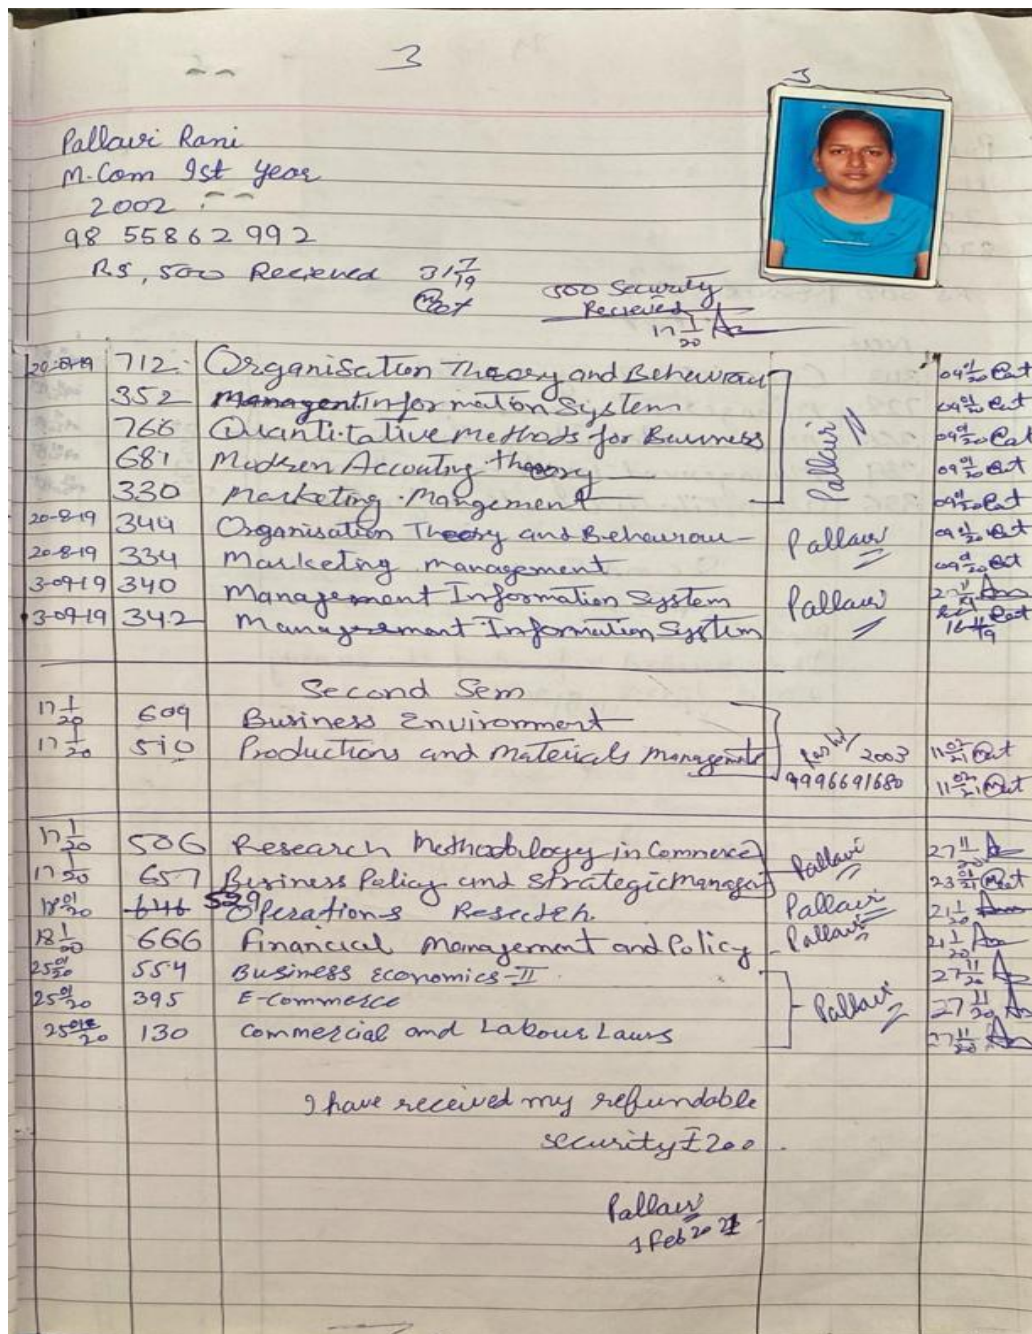 3
3
Pallavi Rani
M.Com Ist year
2002
98 55862992
RS, 500 Recieved 31 7/19
500 Security
Recieved
17 1/20
20-8-19 712 Organisation Theory and Behaviour 09 01/20
352 Managent Information System 09 01/20
766 Quantitative methods for Business Pallavi 09 01/20
681 Modren Accouting theory 09 01/20
330 Marketing Mangement 09 01/20
20-8-19 344 Organisation Theory and Behaviour Pallavi 09 01/20
20-8-19 334 Marketing management 09 01/20
3-09-19 340 Management Information System Pallavi
3-09-19 342 Management Information System 16 11/19
Second Sem
17 1/20 609 Business Environment
17 1/20 510 Productions and Materials Managemet 2003 11 02/21
9996691680 11 02/21
17 1/20 506 Research Methodology in Commerce Pallavi 27 11/20
17 1/20 657 Business Policy and Strategic Manage 23 01/21
18 01/20 646 529 Operations Reseach. Pallavi 21 1/20
18 1/20 666 Financial Management and Policy Pallavi 21 1/20
25 01/20 554 Business Economics-II 27 11/20
25 01/20 395 E-Commerce Pallavi 27 11/20
25 01/20 130 Commercial and Labour Laws 27 11/20
I have received my refundable
security ₹200
Pallavi
1 Feb 2021